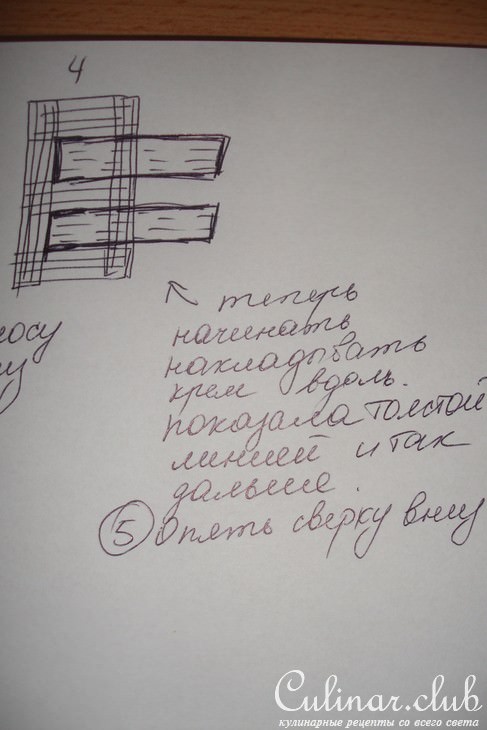 4
теперь
начинать
накладывать
крем вдоль.
показала толстой
линией и так
дальше.
5 Опять сверху вниз
Culinar.club
кулинарные рецепты со всего света